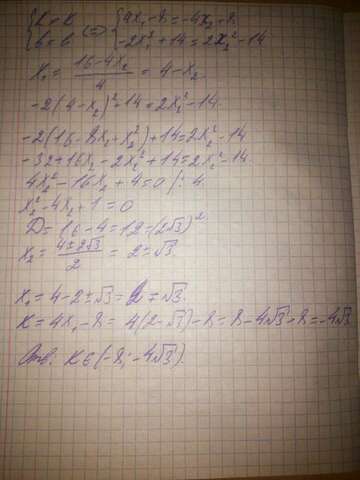 {k = k <=> {4x₁ - 8 = -4x₂ + 8
{b = b {-2x₁² + 14 = 2x₂² - 14
x₁ = (16 - 4x₂)/4 = 4 - x₂
-2(4 - x₂)² + 14 = 2x₂² - 14.
-2(16 - 8x₂ + x₂²) + 14 = 2x₂² - 14
-32 + 16x₂ - 2x₂² + 14 = 2x₂² - 14.
4x₂² - 16x₂ + 4 = 0 /: 4
x₂² - 4x₂ + 1 = 0
D = 16 - 4 = 12 = (2√3)²
x₂ = (4 ± 2√3)/2 = 2 ± √3.
x₁ = 4 - 2 ± √3 = 2 ∓ √3.
K = 4x₁ - 8 = 4(2 - √3) - 8 = 8 - 4√3 - 8 = -4√3
Отв. K ∈ (-8; -4√3).